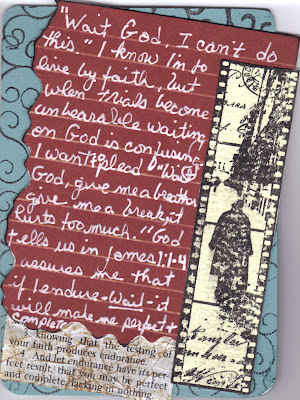 "Wait God, I can't do
this." I know I'm to
live by faith, but
when trials become
unbearable waiting
on God is confusing.
I want to plead "Wait
God, give me a breather
give me a break, it
hurts too much." God
tells us in James 1:1-4
assures me that
if I endure - wait - it
will make me perfect +
complete
3 Knowing that the testing of
your faith produces endurance.
4 And let endurance have its per-
fect result, that you may be perfect
and complete, lacking in nothing.